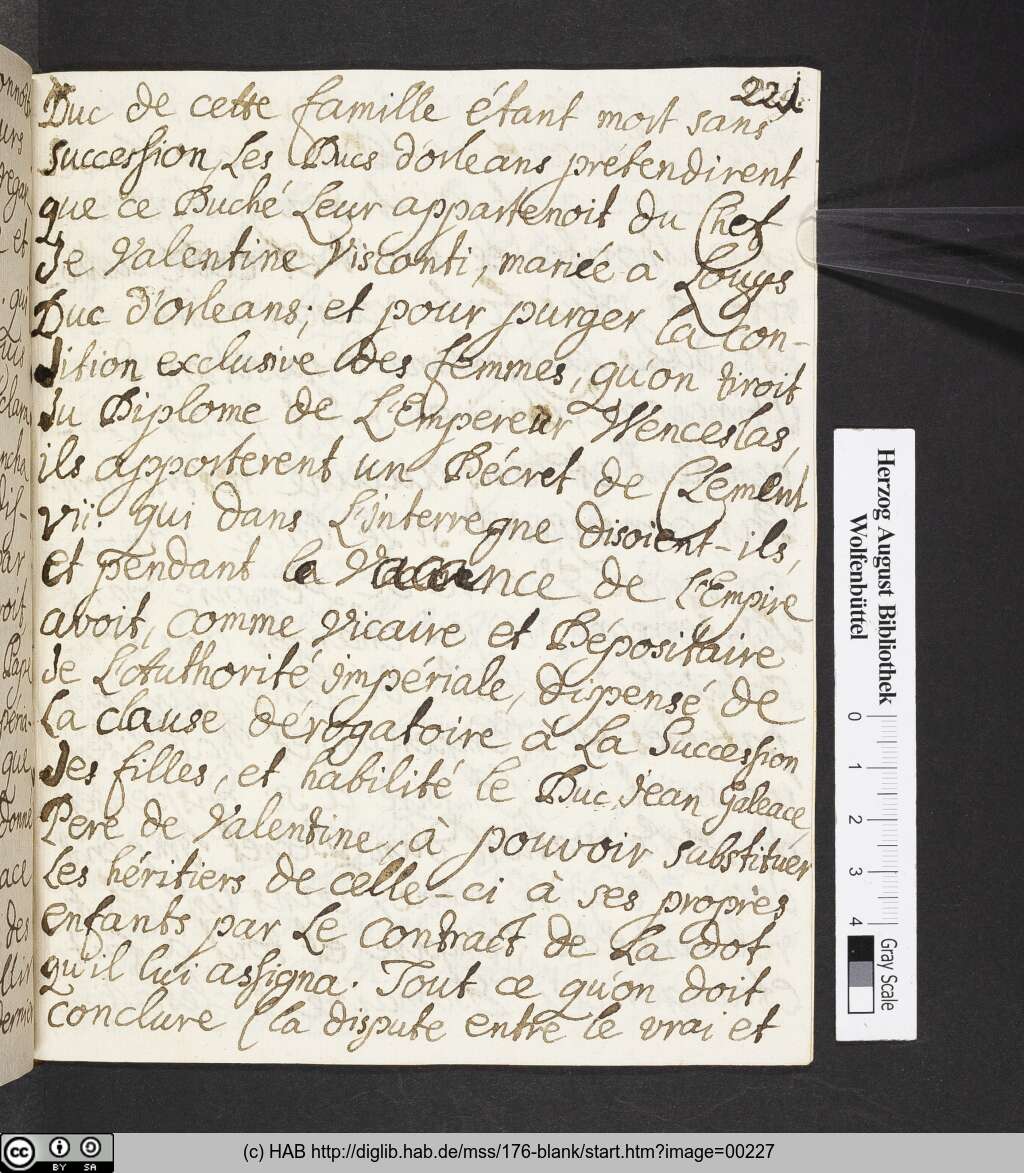 221
Duc de cette famille étant mort sans
succession, Les Ducs d'orleans prétendirent
que ce Duché Leur appartenoit du Chef
de Valentine Visconti, mariée à Louys
Duc d'orleans; et pour purger la con-
dition exclusive des femmes, qu'on tiroit
du Diplome de L'Empereur Wenceslas,
ils apporterent un Décret de Clement
vii. qui dans L'interregne disoient-ils,
et pendant la Vacance de L'Empire
avoit, comme Vicaire et Dépositaire
de L'Authorité impériale, dispensé de
La clause dérogatoire à La Succession
des filles, et habilité le Duc Jean Galeace,
Pere de Valentine, à pouvoir substituer
Les héritiers de celle-ci à ses propres
enfants par Le Contract de La dot
qu'il lui assigna. Tout ce qu'on doit
conclure (la dispute entre le vrai et
Herzog August Bibliothek
Wolfenbüttel
0 1 2 3 4
Gray Scale
cc BY SA
(c) HAB http://diglib.hab.de/mss/176-blank/start.htm?image=00227